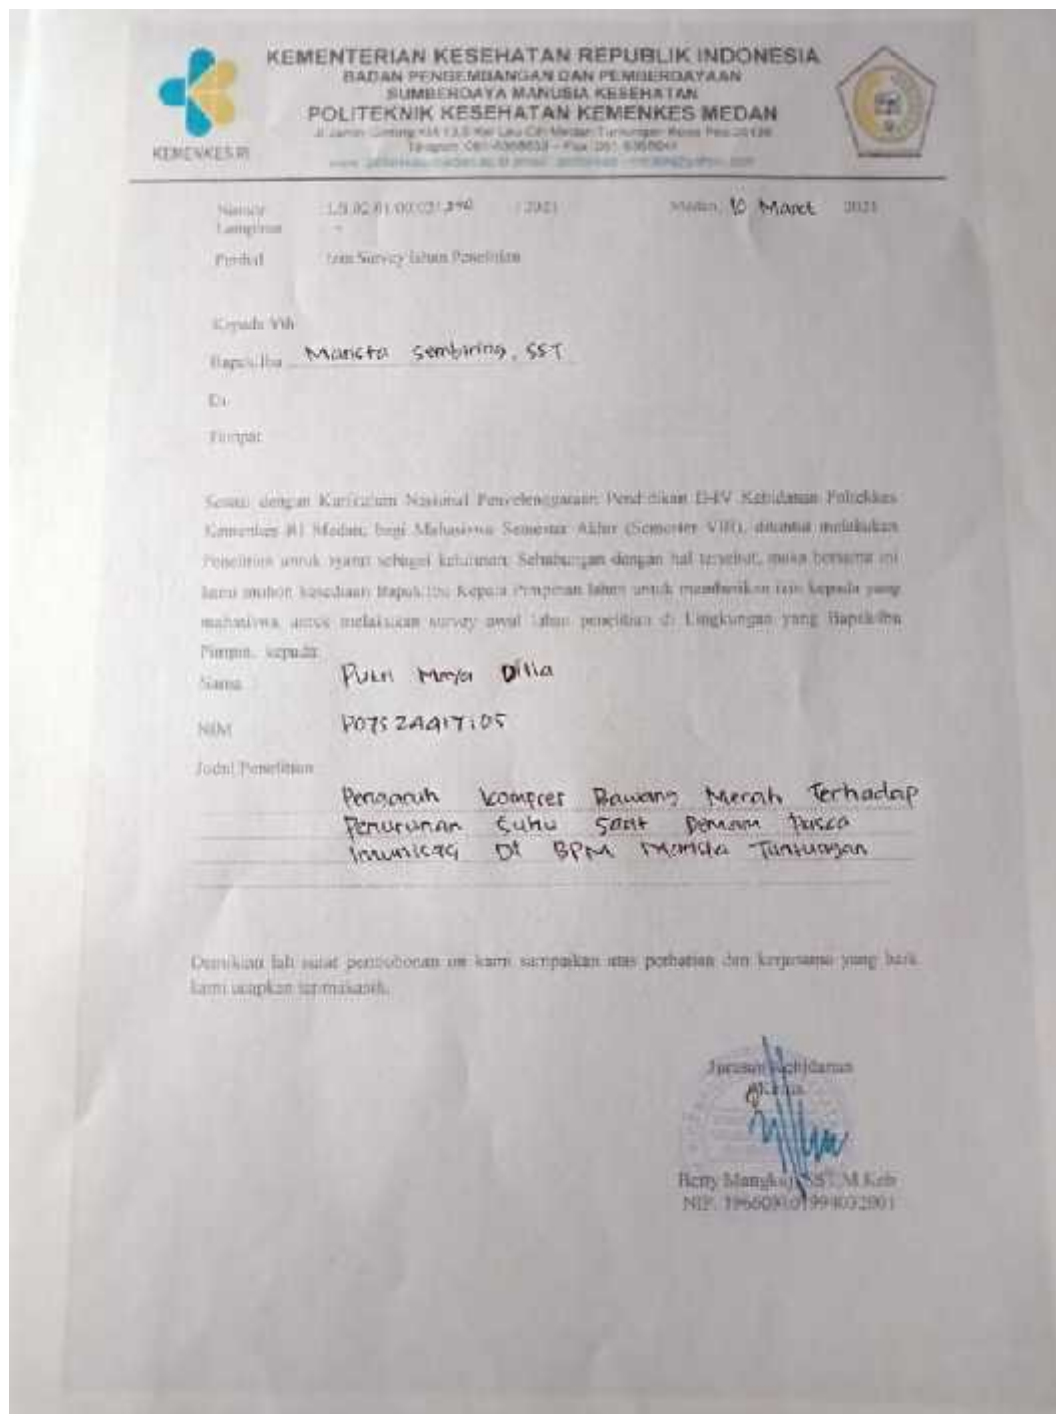 KEMENTERIAN KESEHATAN REPUBLIK INDONESIA
BADAN PENGEMBANGAN DAN PEMBERDAYAAN
SUMBERDAYA MANUSIA KESEHATAN
POLITEKNIK KESEHATAN KEMENKES MEDAN
KEMENKES RI
Jl. Jamin Ginting KM 13,5 Kel Lau Cih Medan Tuntungan
Nomor 2021 Medan, 10 Maret 2021
Lampiran : -
Perihal Izin Survey lahan Penelitian
Kepada Yth
Bapak/Ibu Marista Sembiring, SST
Di
Tempat
Sesuai dengan Kurikulum Nasional Penyelenggaraan Pendidikan D-IV Kebidanan Poltekkes
Kemenkes RI Medan, bagi Mahasiswa Semester Akhir (Semester VIII), dituntut melakukan
Penelitian untuk sebagai Sehubungan dengan hal tersebut, maka bersama ini
kami mohon kesediaan Bapak/Ibu Kepala Pimpinan lahan untuk memberikan izin kepada yang
mahasiswa untuk melakukan survey awal lahan penelitian di Lingkungan yang Bapak/Ibu
Pimpin, kepada:
Nama Putri Maya Dilla
NIM
Judul Penelitian
Pengaruh Kompres Bawang Merah Terhadap
Penurunan Suhu Saat Demam Pasca
Imunisasi Di BPM Marista Tuntungan
Demikian lah surat permohonan ini kami sampaikan atas perhatian dan kerjasama yang baik
kami ucapkan terimakasih.
Jurusan Kebidanan
Ketua
Betty Mangkuji, SST, M.Keb
NIP.